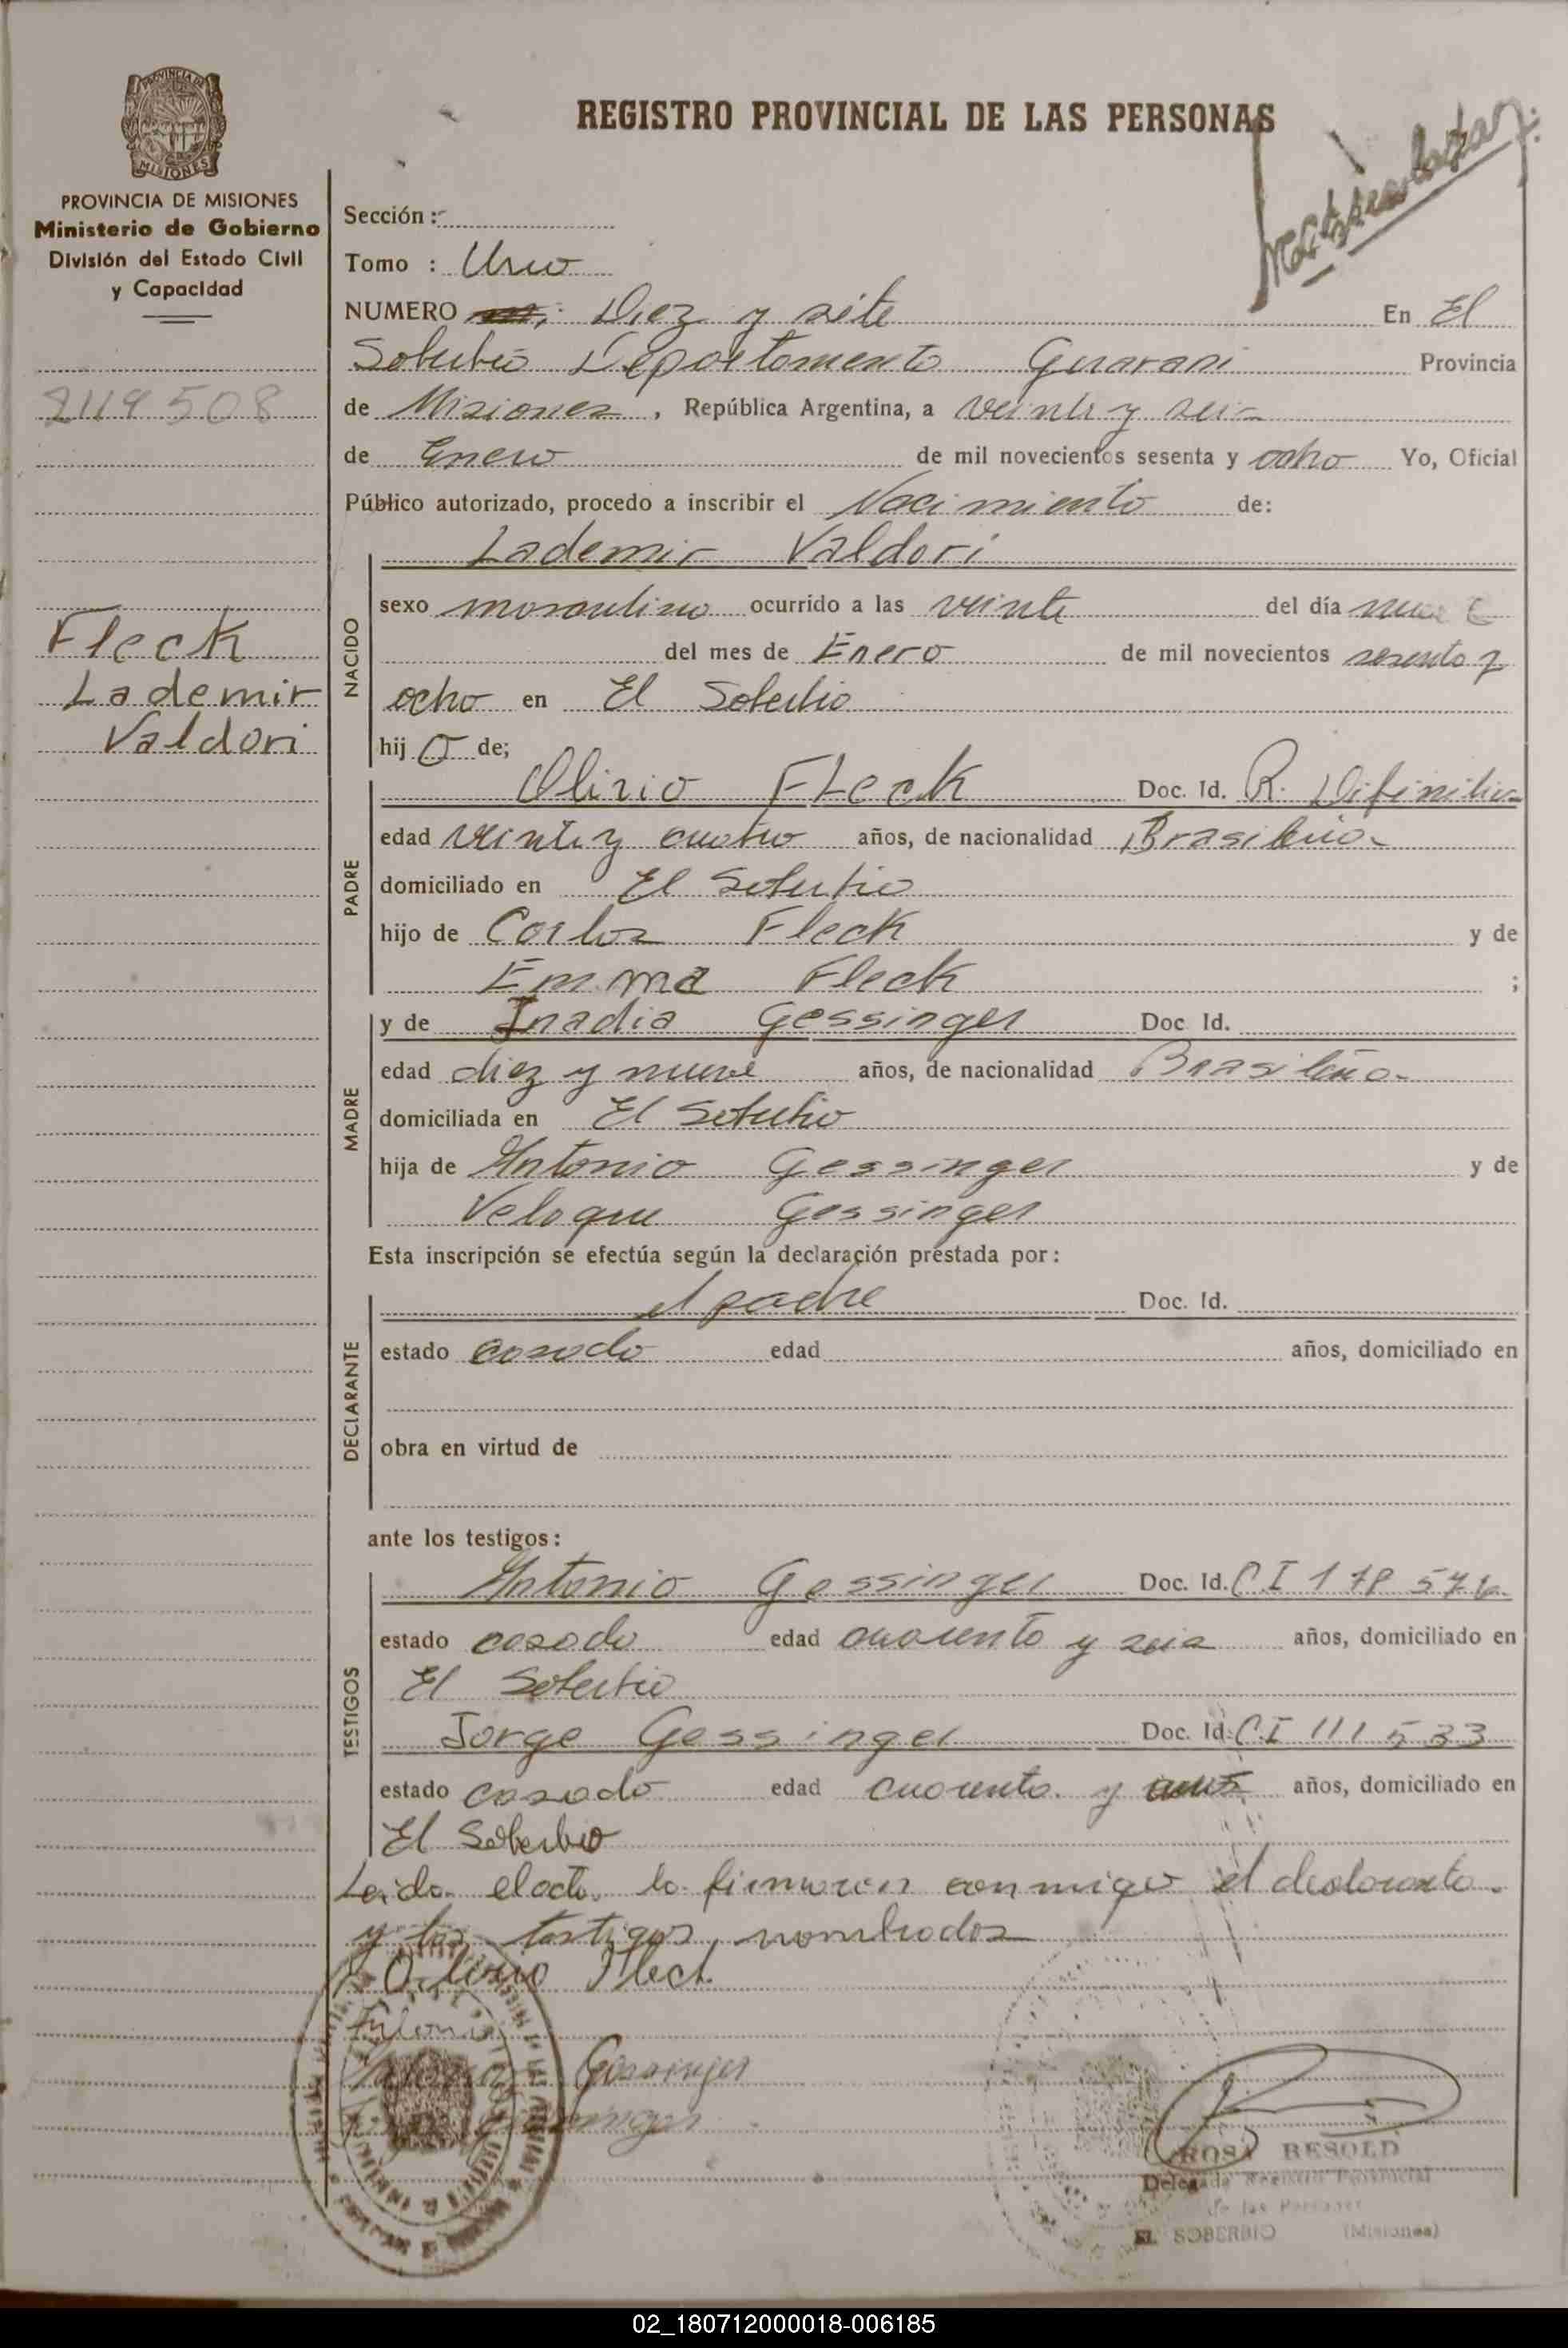 PROVINCIA DE MISIONES
Ministerio de Gobierno
División del Estado Civil
y Capacidad
2119508
Fleck
Lademir
Valdori
REGISTRO PROVINCIAL DE LAS PERSONAS
Sección :
Tomo : Uno
NUMERO Diez y siete En El
Soberbio Departamento Guarani Provincia
de Misiones , República Argentina, a veinte y seis
de Enero de mil novecientos sesenta y ocho Yo, Oficial
Público autorizado, procedo a inscribir el Nacimiento de:
Lademir Valdori
NACIDO
sexo masculino ocurrido a las veinte del día
del mes de Enero de mil novecientos sesenta y
ocho en El Soberbio
hij o de;
PADRE
Olirio Fleck Doc. Id. R. Difinitiva
edad veinte y cuatro años, de nacionalidad Brasileña
domiciliado en El Soberbio
hijo de Carlos Fleck y de
Emma Fleck ;
MADRE
y de Inadia Gessinger Doc Id.
edad diez y nueve años, de nacionalidad Brasileña
domiciliada en El Soberbio
hija de Antonio Gessinger y de
Veloque Gessinger
Esta inscripción se efectúa según la declaración prestada por :
DECLARANTE
el padre Doc. Id.
estado casado edad años, domiciliado en
obra en virtud de
ante los testigos :
TESTIGOS
Antonio Gessinger Doc. Id. C I 178 576
estado casado edad cuarenta y seis años, domiciliado en
El Soberbio
Jorge Gessinger Doc. Id. C.I 111 533
estado casado edad cuarenta y años, domiciliado en
El Soberbio
Leida el acta la firmaron conmigo el declarante
y los testigos nombrados
Fleck
Gessinger
ROSA RESOLD
Delegada Registro Provincial
de las Personas
EL SOBERBIO (Misiones)
02_180712000018-006185